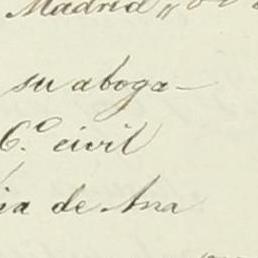 Madrid „
su aboga-
C.º civil
ia de Ana